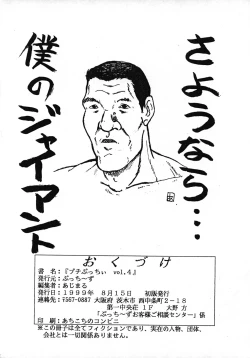 さようなら…
僕のジャイアント
おくづけ
書 名：『プチぶっちぃ vol.4』
発行元：ぶっち～ず
編集者：あじまる
発行日：1999年 8月15日 初版発行
連絡先：〒567-0887 大阪府 茨木市 西中条町2-18
第一中央荘 1F 大野 方
『ぶっち～ずお客様ご相談センター』係
印 刷：あちこちのコンビニ
※この冊子は全てフィクションであり、実在の人物、団体、
会社とは一切関係ありません。